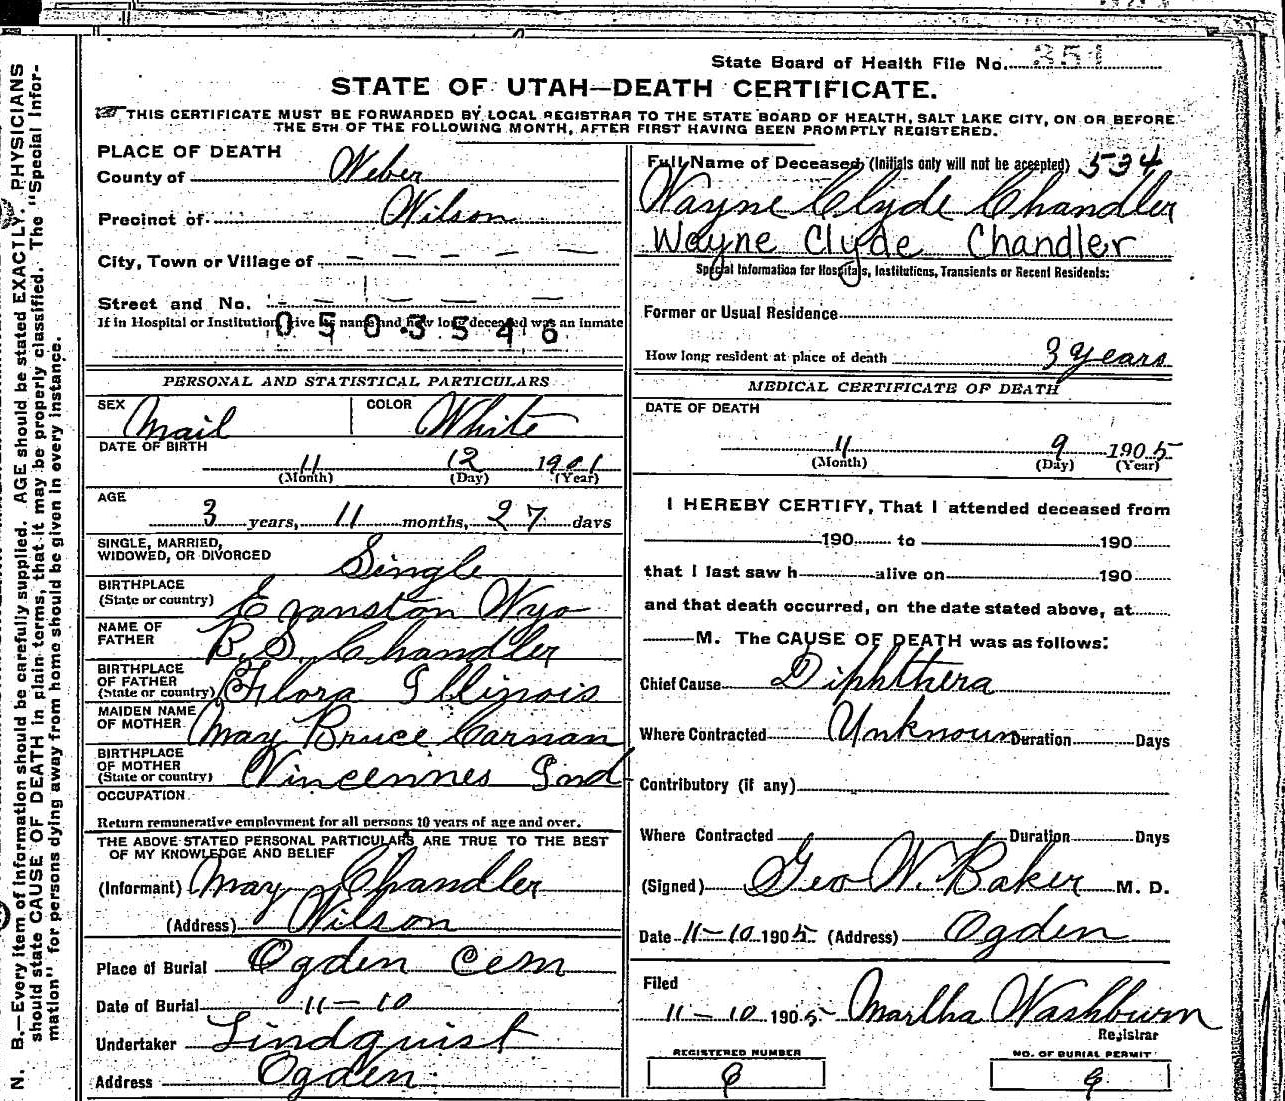 State Board of Health File No. 351
STATE OF UTAH—DEATH CERTIFICATE.
THIS CERTIFICATE MUST BE FORWARDED BY LOCAL REGISTRAR TO THE STATE BOARD OF HEALTH, SALT LAKE CITY, ON OR BEFORE
THE 5TH OF THE FOLLOWING MONTH, AFTER FIRST HAVING BEEN PROMPTLY REGISTERED.
PLACE OF DEATH
County of Weber
Precinct of Wilson
City, Town or Village of — — — —
Street and No. — — — —
If in Hospital or Institution give its name and how long deceased was an inmate
0503546
PERSONAL AND STATISTICAL PARTICULARS
SEX Mail COLOR White
DATE OF BIRTH
11 12 1901
(Month) (Day) (Year)
AGE
3 years, 11 months, 27 days
SINGLE, MARRIED,
WIDOWED, OR DIVORCED Single
BIRTHPLACE
(State or country) Evanston Wyo
NAME OF
FATHER B. S. Chandler
BIRTHPLACE
OF FATHER
(State or country) Flora Illinois
MAIDEN NAME
OF MOTHER May Bruce Carnan
BIRTHPLACE
OF MOTHER
(State or country) Vincennes Ind
OCCUPATION
Return remunerative employment for all persons 10 years of age and over.
THE ABOVE STATED PERSONAL PARTICULARS ARE TRUE TO THE BEST
OF MY KNOWLEDGE AND BELIEF
(Informant) May Chandler
(Address) Wilson
Place of Burial Ogden Cem
Date of Burial 11–10
Undertaker Lindquist
Address Ogden
Full Name of Deceased (Initials only will not be acepted) 534
Wayne Clyde Chandler
Wayne Clyde Chandler
Special Information for Hospitals, Institutions, Transients or Recent Residents:
Former or Usual Residence
How long resident at place of death 3 years
MEDICAL CERTIFICATE OF DEATH
DATE OF DEATH
11 9 1905
(Month) (Day) (Year)
I HEREBY CERTIFY, That I attended deceased from
190 to 190
that I last saw h alive on 190
and that death occurred, on the date stated above, at
M. The CAUSE OF DEATH was as follows:
Chief Cause Diphtthera
Where Contracted Unknown Duration Days
Contributory (if any)
Where Contracted Duration Days
(Signed) Geo W. Baker M. D.
Date 11–10 1905 (Address) Ogden
Filed
11–10 1905 Martha Washburn
Registrar
REGISTERED NUMBER NO. OF BURIAL PERMIT
9 9
N. B.—Every item of information should be carefully supplied. AGE should be stated EXACTLY. PHYSICIANS
should state CAUSE OF DEATH in plain terms, that it may be properly classified. The "Special Infor-
mation" for persons dying away from home should be given in every instance.